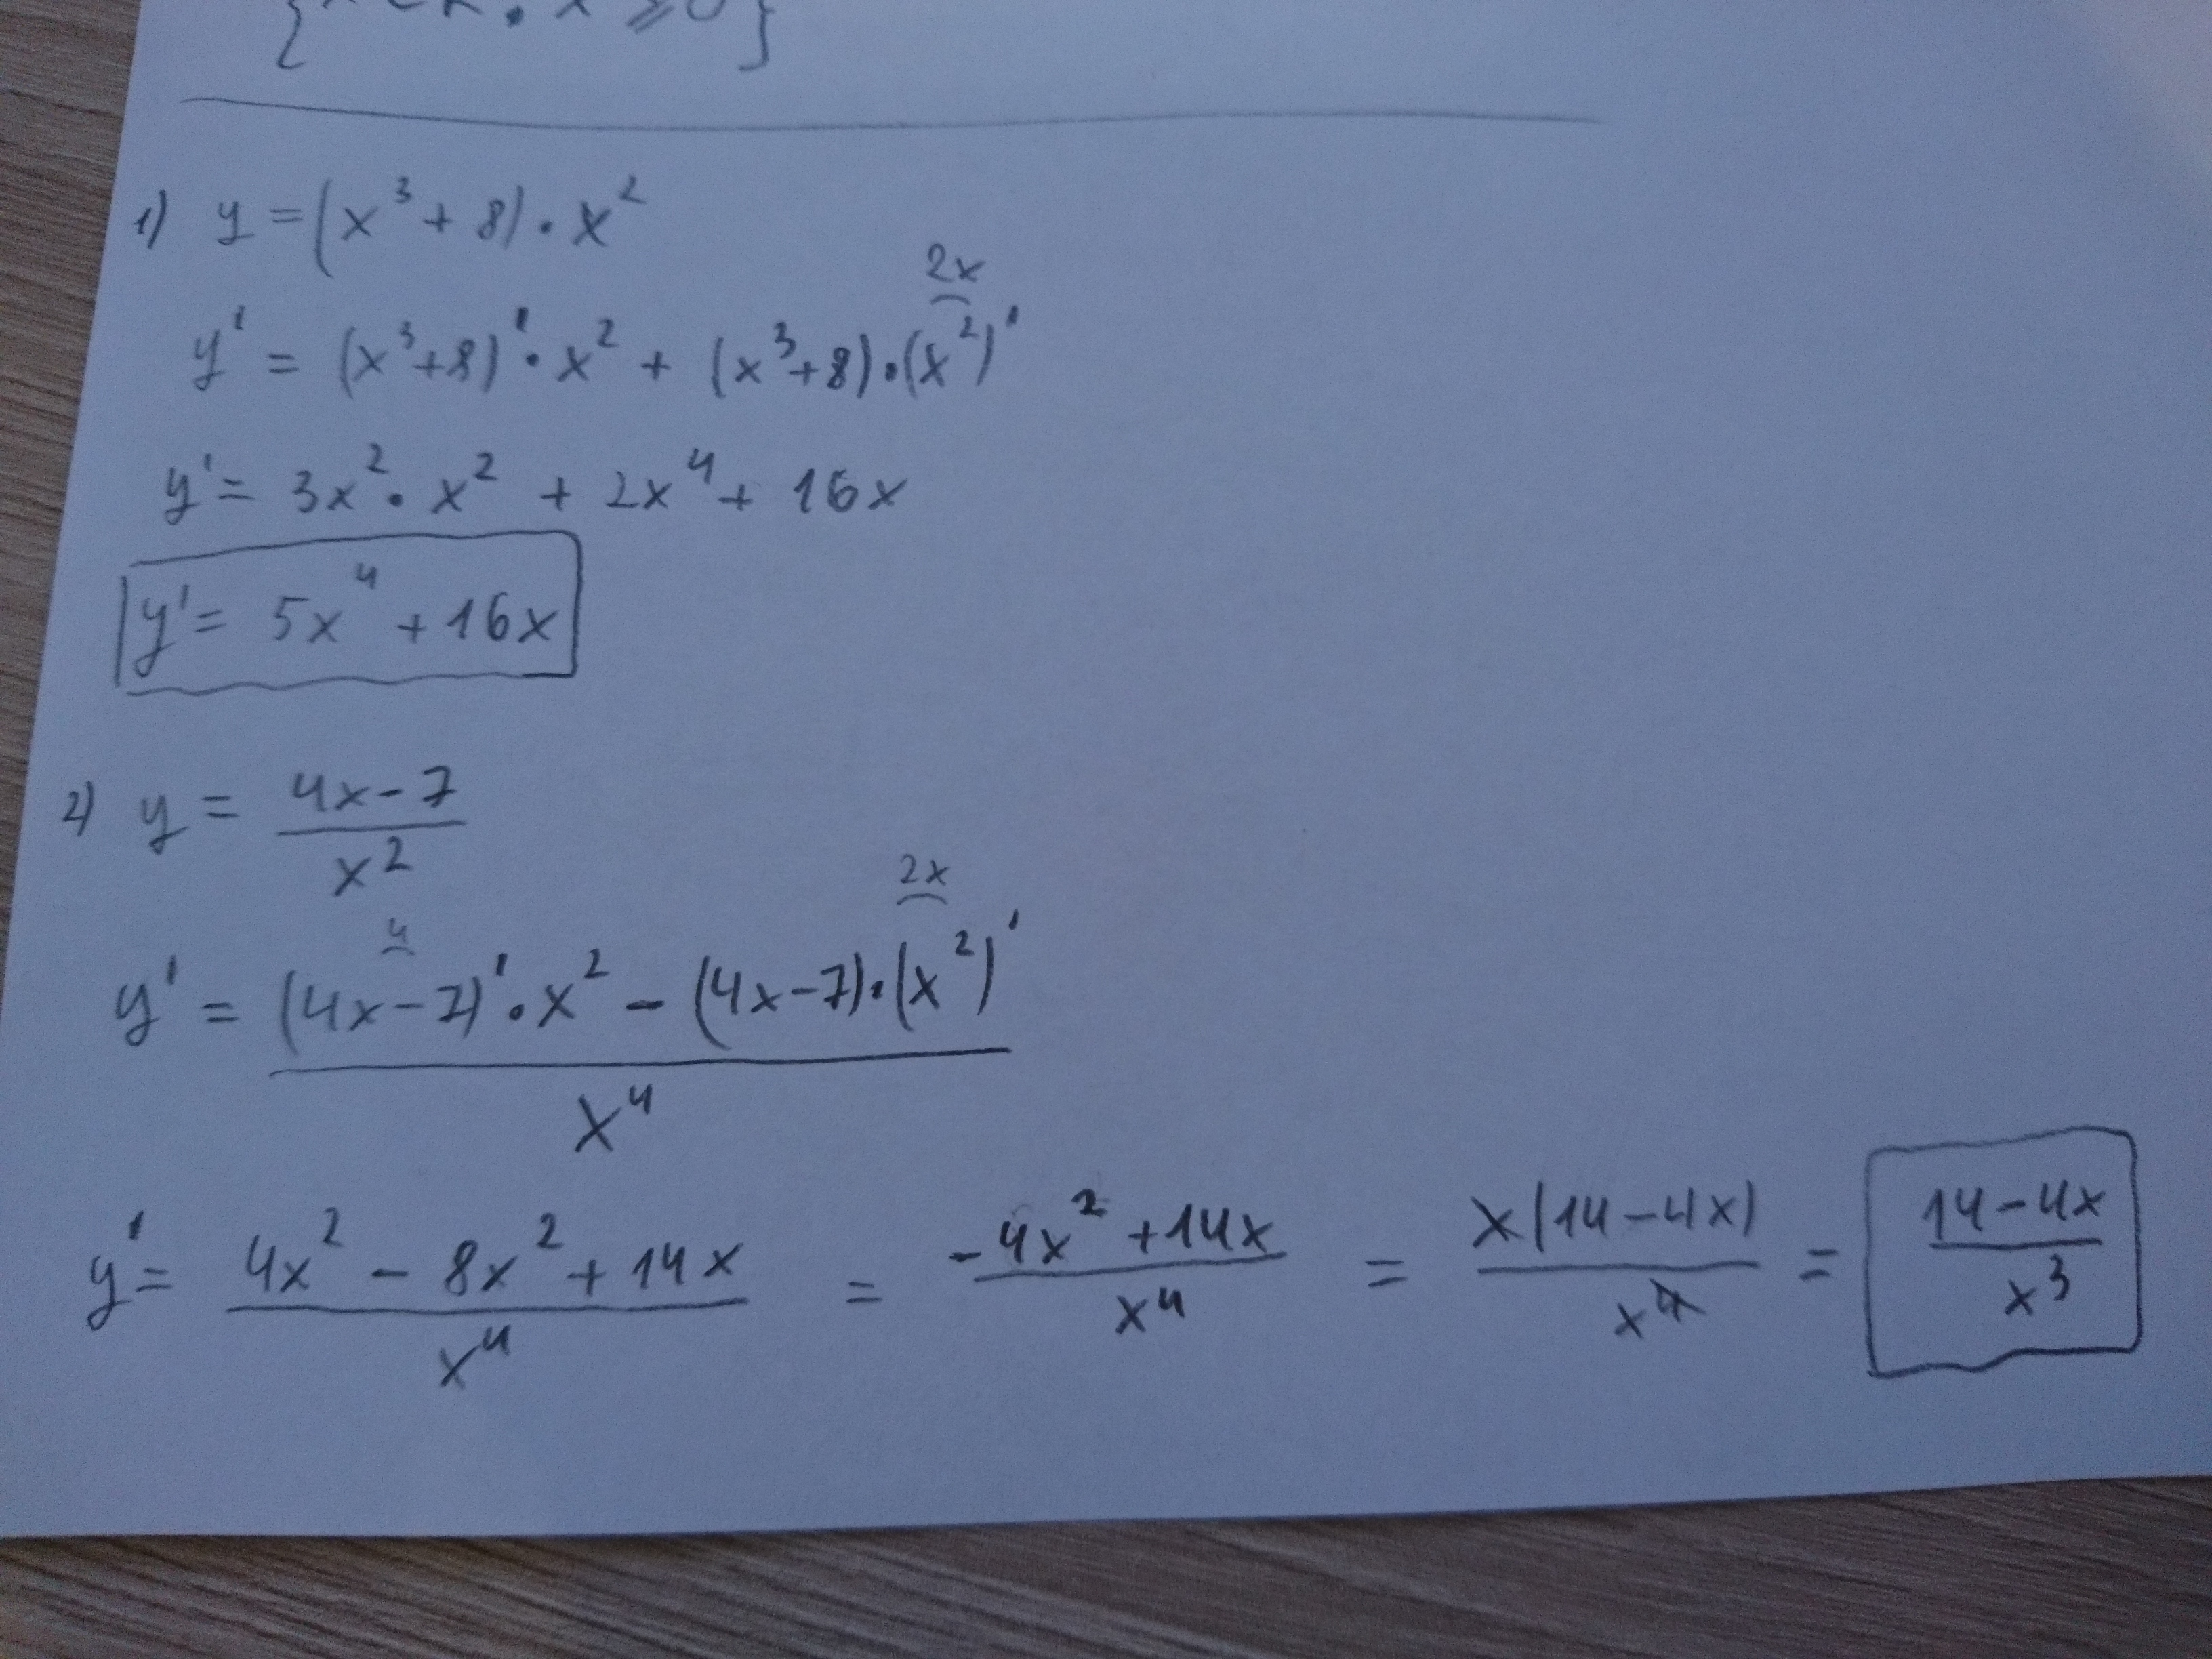 {x ∈ R : x ≥ 0}
1) y = (x³ + 8) · x²
2x
y' = (x³+8)' · x² + (x³+8) · (x²)'
y' = 3x² · x² + 2x⁴ + 16x
y' = 5x⁴ + 16x
2) y = (4x-7)/x²
4 2x
y' = ((4x-7)' · x² - (4x-7) · (x²)')/x⁴
y' = (4x² - 8x² + 14x)/x⁴ = (-4x² + 14x)/x⁴ = x(14-4x)/x⁴ = (14-4x)/x³